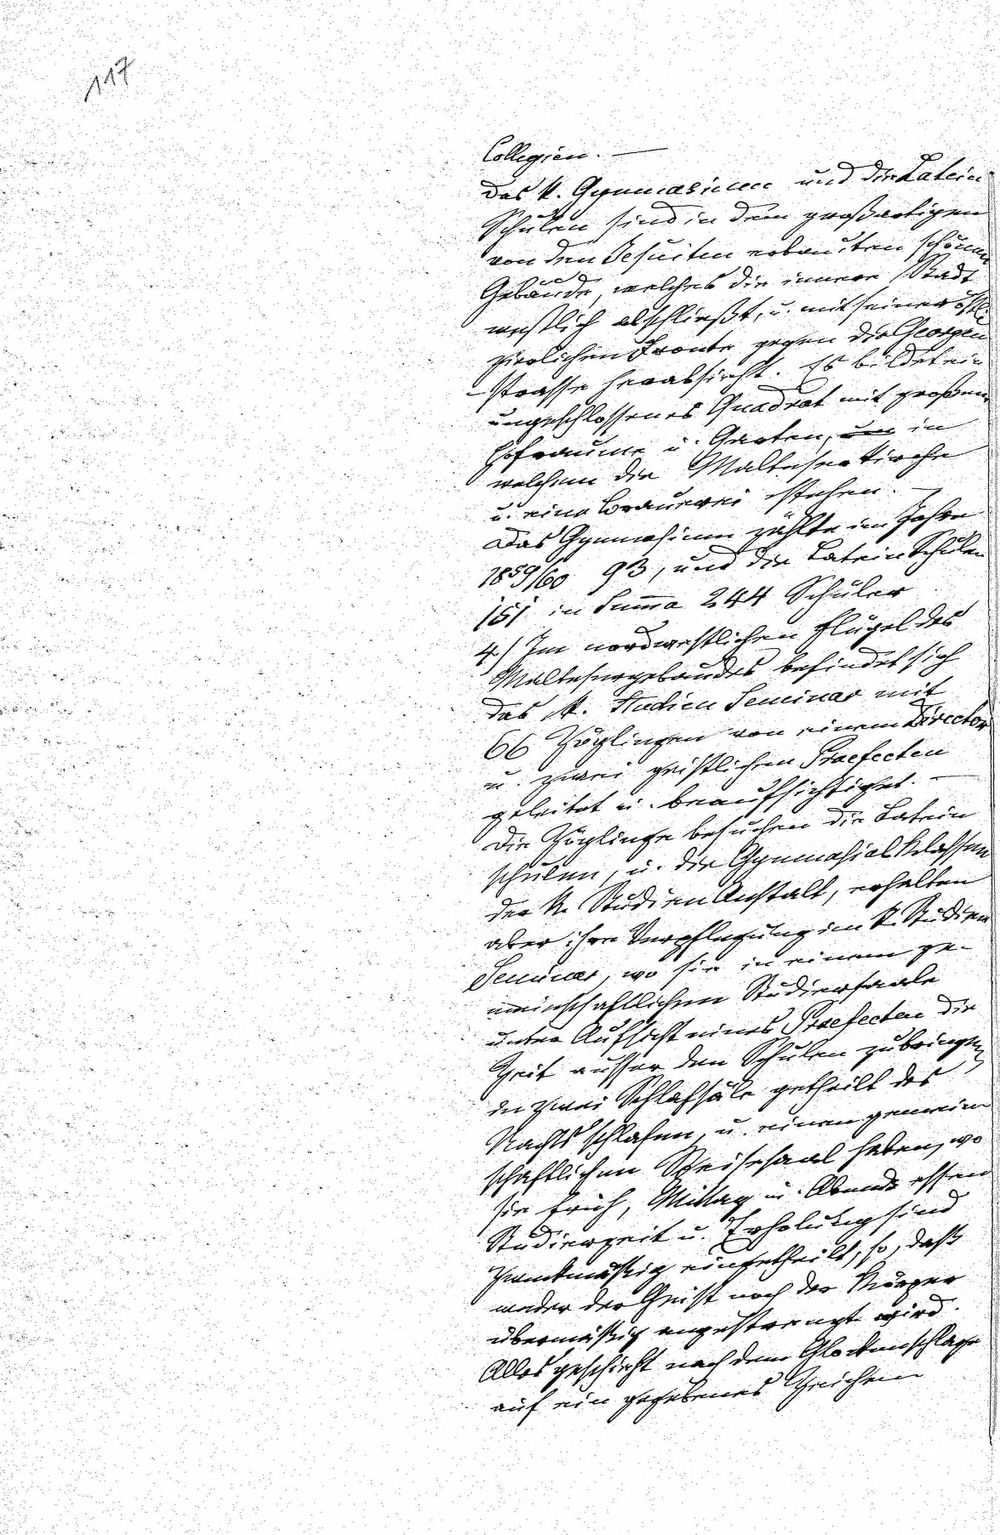 117
Collegien. —
Das k. Gymnasium und die Latein-
Schulen sind in dem großartigen
von den Jesuiten erbauten schönen
Gebäude, welches die innere Stadt
westlich abschließt, u. mit seiner östl.
zierlichen Fronte gegen die Georgen
-strasse herabsieht. Es bildet ein
ungeschlossenes Quadrat mit großem
Hofraume u. Garten, in
welchem die Malteserkirche
u. eine Brauerei stehen. —
Das Gymnasium zählte im Jahre
1859/60 93, und die Lateinschulen
151 in Summa 244 Schüler
4/ Im nordwestlichen Flügel des
Maltesergebäudes befindet sich
das k. Studien Seminar mit
66 Zöglingen von einem Director
u. zwei geistlichen Praefecten
geleitet u. beaufsichtiget. —
Die Zöglinge besuchen die Latein
schulen, u. die Gymnasialklassen
der k. Studien Anstalt, erhalten
aber ihre Verpflegung im k. Studien
Seminar, wo sie in einem ge-
meinschaftlichen Studiersaale
unter Aufsicht eines Praefecten die
Zeit ausser den Schulen zubringen,
in zwei Schlafsäle getheilt des
Nachts schlafen, u. einen gemein
schaftlichen Speisesaal haben, wo
sie früh, Mittag u. Abends essen
Studierzeit u. Erholung sind
zweckmäßig eingetheilt, so, daß
weder der Geist noch der Körper
übermäßig angestrengt wird.
Alles geschieht nach dem Glockenschlage
auf ein gegebenes Zeichen